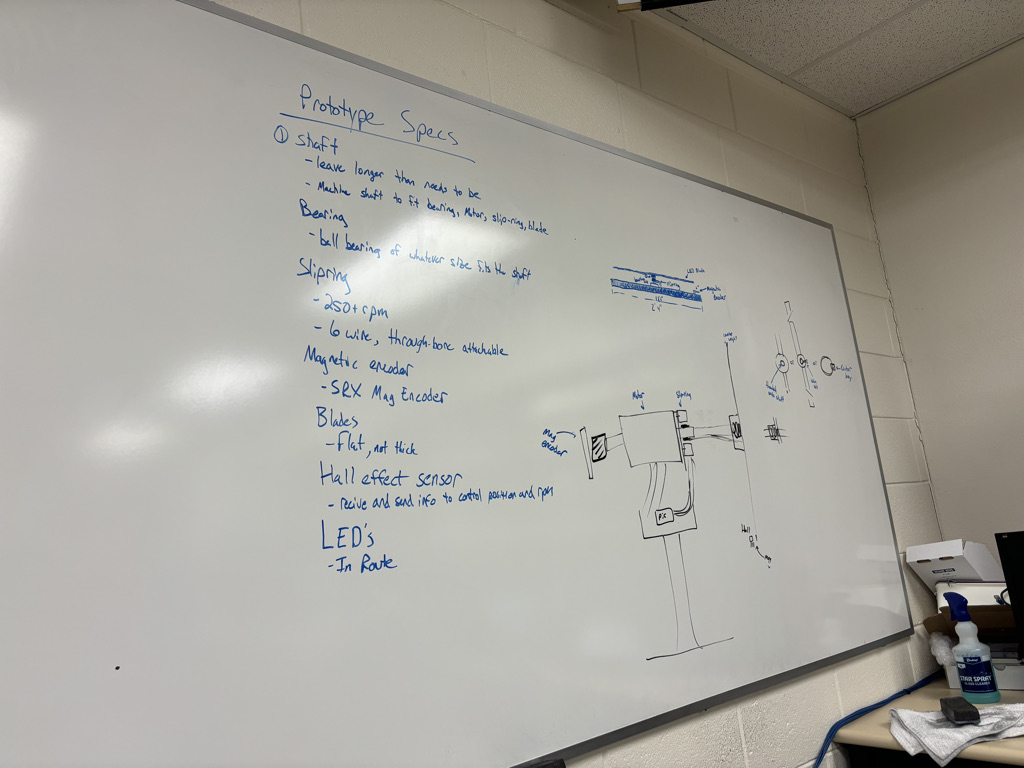 Prototype Specs
① shaft
- leave longer than needs to be
- Machine shaft to fit bearing, Motor, slip-ring, blade
Bearing
- ball bearing of whatever size fits the shaft
Slipring
- 250+ rpm
- 6 wire, through-bore attachable
Magnetic encoder
- SRX Mag Encoder
Blades
- Flat, not thick
Hall effect sensor
- recive and send info to control position and rpm
LED's
- In Route
LED Blade
Magnetic
Encoder
Motor
Slipring
Mag
encoder
Hall
STAR SPRAY